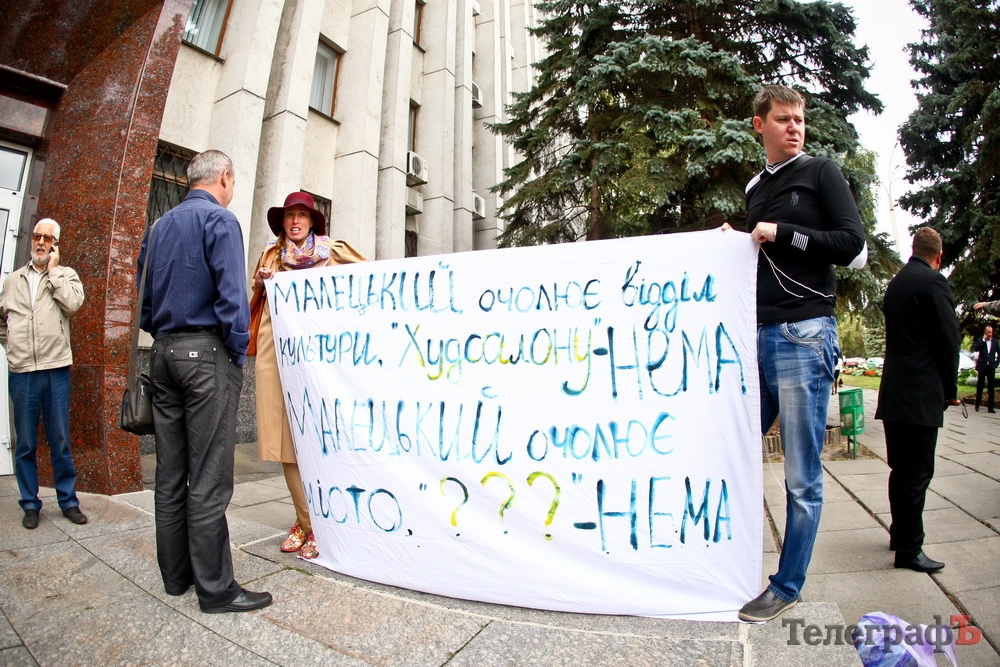 МАЛЕЦЬКИЙ ОЧОЛЮЄ ВІДДІЛ
КУЛЬТУРИ. "ХУДСАЛОНУ"-НЕМА
МАЛЕЦЬКИЙ ОЧОЛЮЄ
МІСТО. "???"-НЕМА
ТелеграфЪ